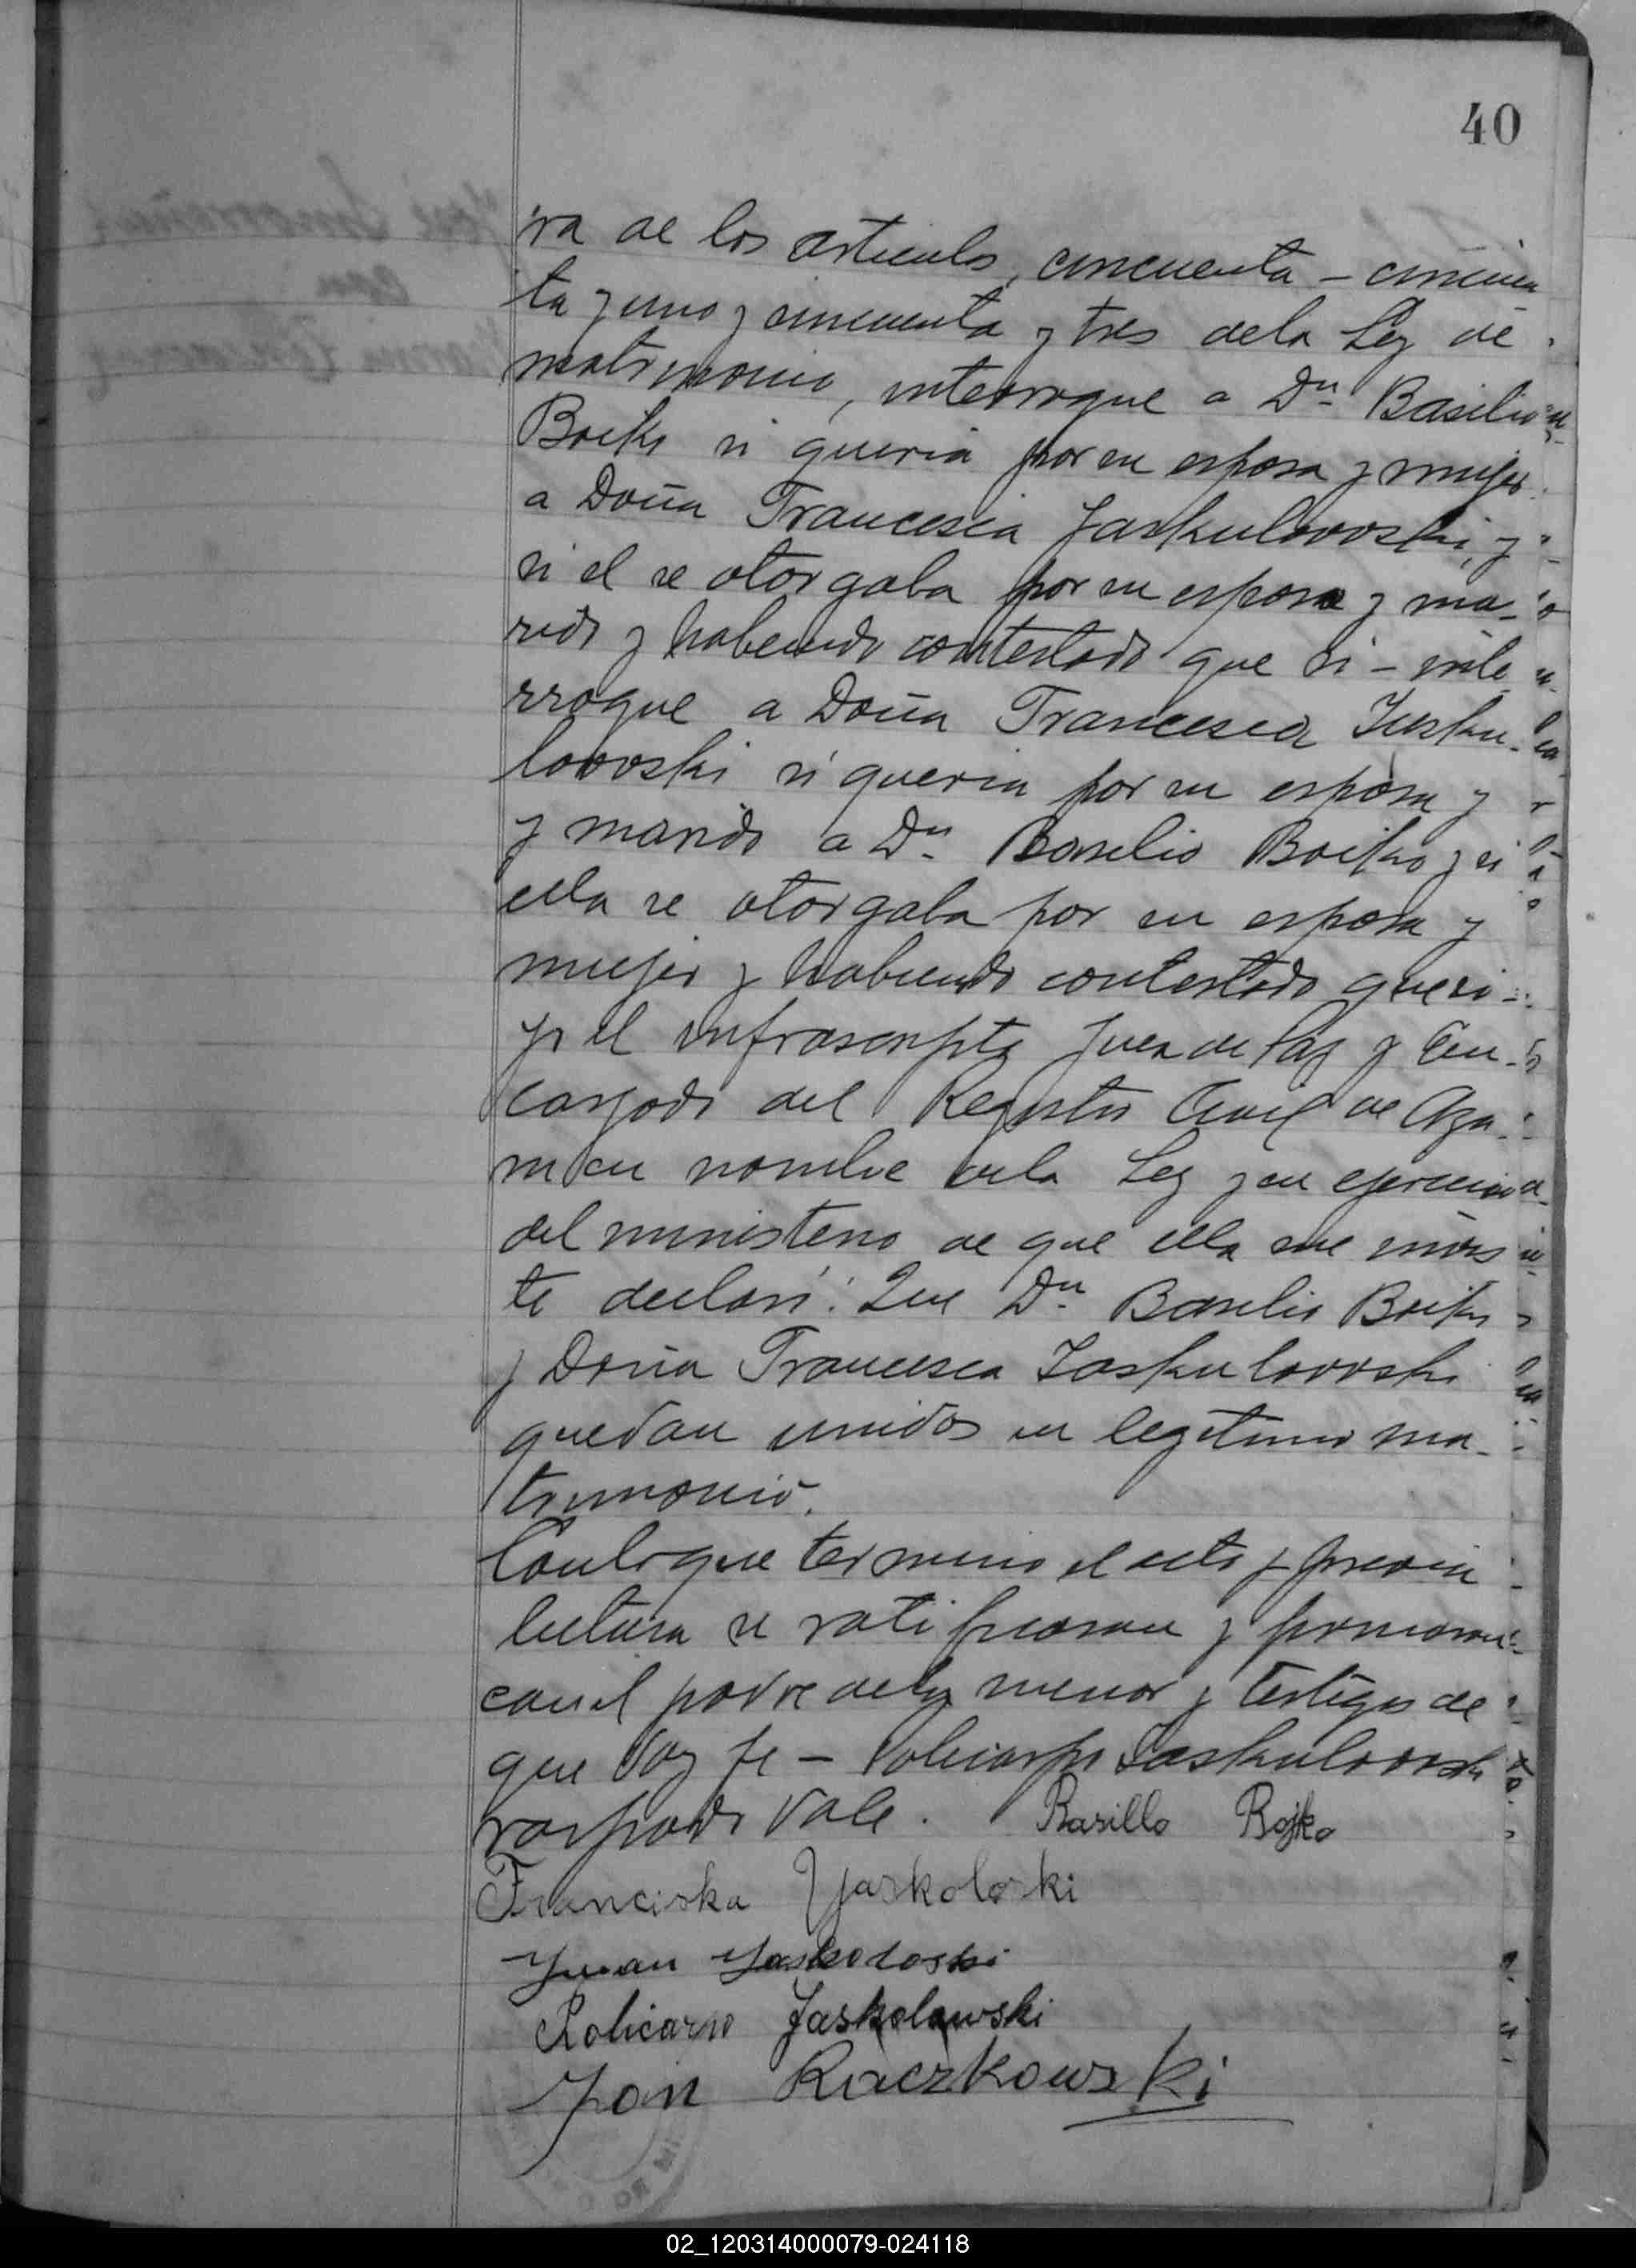 40
ra de los articulos, cincuenta – cincuen
ta y uno y cincuenta y tres de la Ley de
matrimonio, interrogue a Dn Basilio
Boiko si queria por su esposa y mujer
a Doña Francesca Jaskulovoski, y
si el se otorgaba por su esposo y ma-
rido y habiendo contestado que si – inte
rrogue a Doña Francesca Jasku-
lovoski si queria por su esposo y
y marido a Dn Basilio Boiko y si
ella se otorgaba por su esposa y
mujer y habiendo contestado que si –
yo el infrascripto Juez de Paz y En-
cargado del Registro Civil de Aza-
ra en nombre de la Ley y en ejercicio
del ministerio de que ella me invis
te declaré: Que Dn Basilio Boiko
y Doña Francesca Jaskulovoski
quedan unidos en legitimo ma-
trimonio.
Con lo que termino el acto y previa
lectura se ratificaron y firmaron
con el padre de la menor y testigos de
que doy fe – Policarpo Jaskulovoski
raspado Vale. Basillo Bojko
Franciska Yaskoloski
Juan Yaskoloski
Policarpo Jaskolowski
Jan Raczkowski
02_120314000079-024118